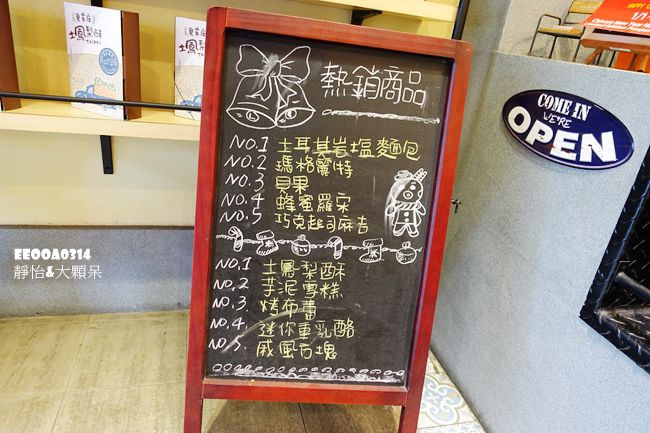 土鳳梨酥
土鳳梨酥
熱銷商品
NO.1 土耳其岩塩麵包
NO.2 瑪格麗特
NO.3 貝果
NO.4 蜂蜜羅宋
NO.5 巧克起司麻吉
NO.1 土鳳梨酥
NO.2 芋泥雪糕
NO.3. 烤布蕾
NO.4. 迷你重乳酪
NO.5. 戚風石塊
COME IN
WE'RE
OPEN
EEOOA0314
靜怡&大顆呆